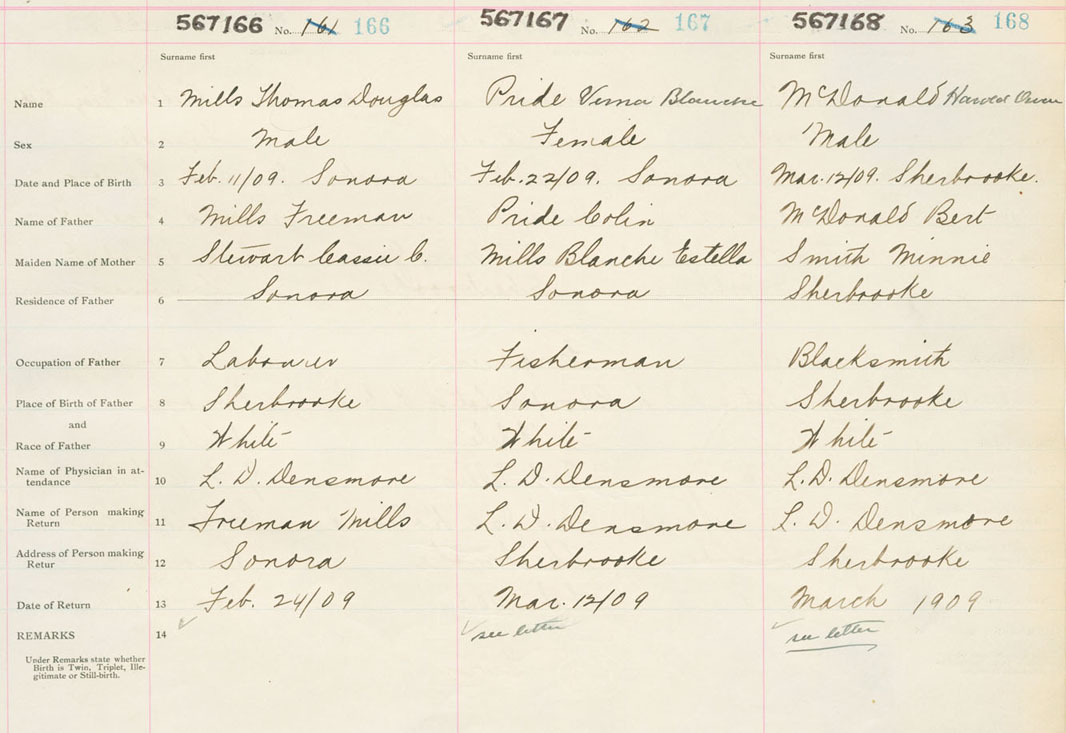 567166 No. 161 166 567167 No. 162 167 567168 No. 163 168
Surname first Surname first Surname first
Name 1 Mills Thomas Douglas Pride Verna Blanche McDonald Harold Owen
Sex 2 Male Female Male
Date and Place of Birth 3 Feb. 11/09. Sonora Feb. 22/09. Sonora Mar. 12/09. Sherbrooke.
Name of Father 4 Mills Freeman Pride Colin McDonald Bert
Maiden Name of Mother 5 Stewart Cassie C. Mills Blanche Estella Smith Minnie
Residence of Father 6 Sonora Sonora Sherbrooke
Occupation of Father 7 Labourer Fisherman Blacksmith
Place of Birth of Father 8 Sherbrooke Sonora Sherbrooke
and
Race of Father 9 White White White
Name of Physician in at-
tendance 10 L. D. Densmore L. D. Densmore L. D. Densmore
Name of Person making
Return 11 Freeman Mills L. D. Densmore L. D. Densmore
Address of Person making
Retur 12 Sonora Sherbrooke Sherbrooke
Date of Return 13 Feb. 24/09 Mar. 12/09 March 1909
REMARKS 14 see letter see letter
Under Remarks state whether
Birth is Twin, Triplet, Ille-
gitimate or Still-birth.